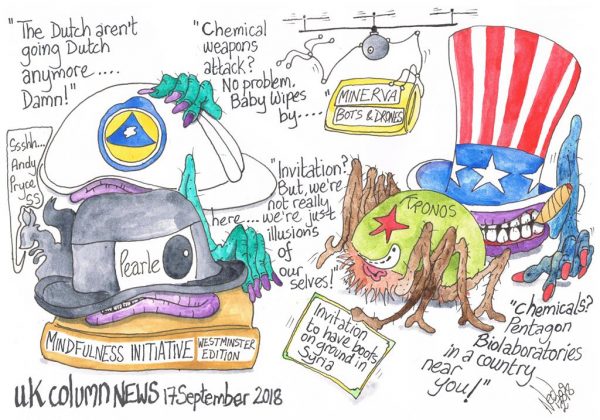 "The Dutch aren't
going Dutch
anymore....
Damn!"
"Chemical
weapons
attack?
No problem.
Baby Wipes
by....."
MINERVA
BOTS & DRONES
Ssshh...
Andy
Pryce
SS)
"Invitation?
But, we're
not really
here....we're just
illusions
of
our
selves!"
KRONOS
Pearle
MINDFULNESS INITIATIVE
WESTMINSTER
EDITION
Invitation
to have boots
on ground in
Syria
"Chemicals?
Pentagon
Biolaboratories
in a country
near
you!"
uk column NEWS 17 September 2018